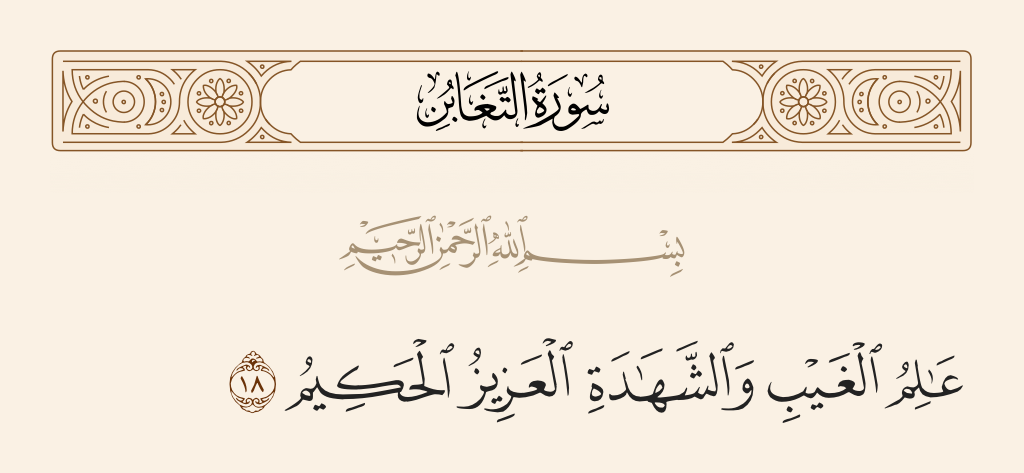 سُورَةُ التَّغَابُنِ
بِسْمِ ٱللَّهِ ٱلرَّحْمَٰنِ ٱلرَّحِيمِ
عَٰلِمُ ٱلْغَيْبِ وَٱلشَّهَٰدَةِ ٱلْعَزِيزُ ٱلْحَكِيمُ ١٨